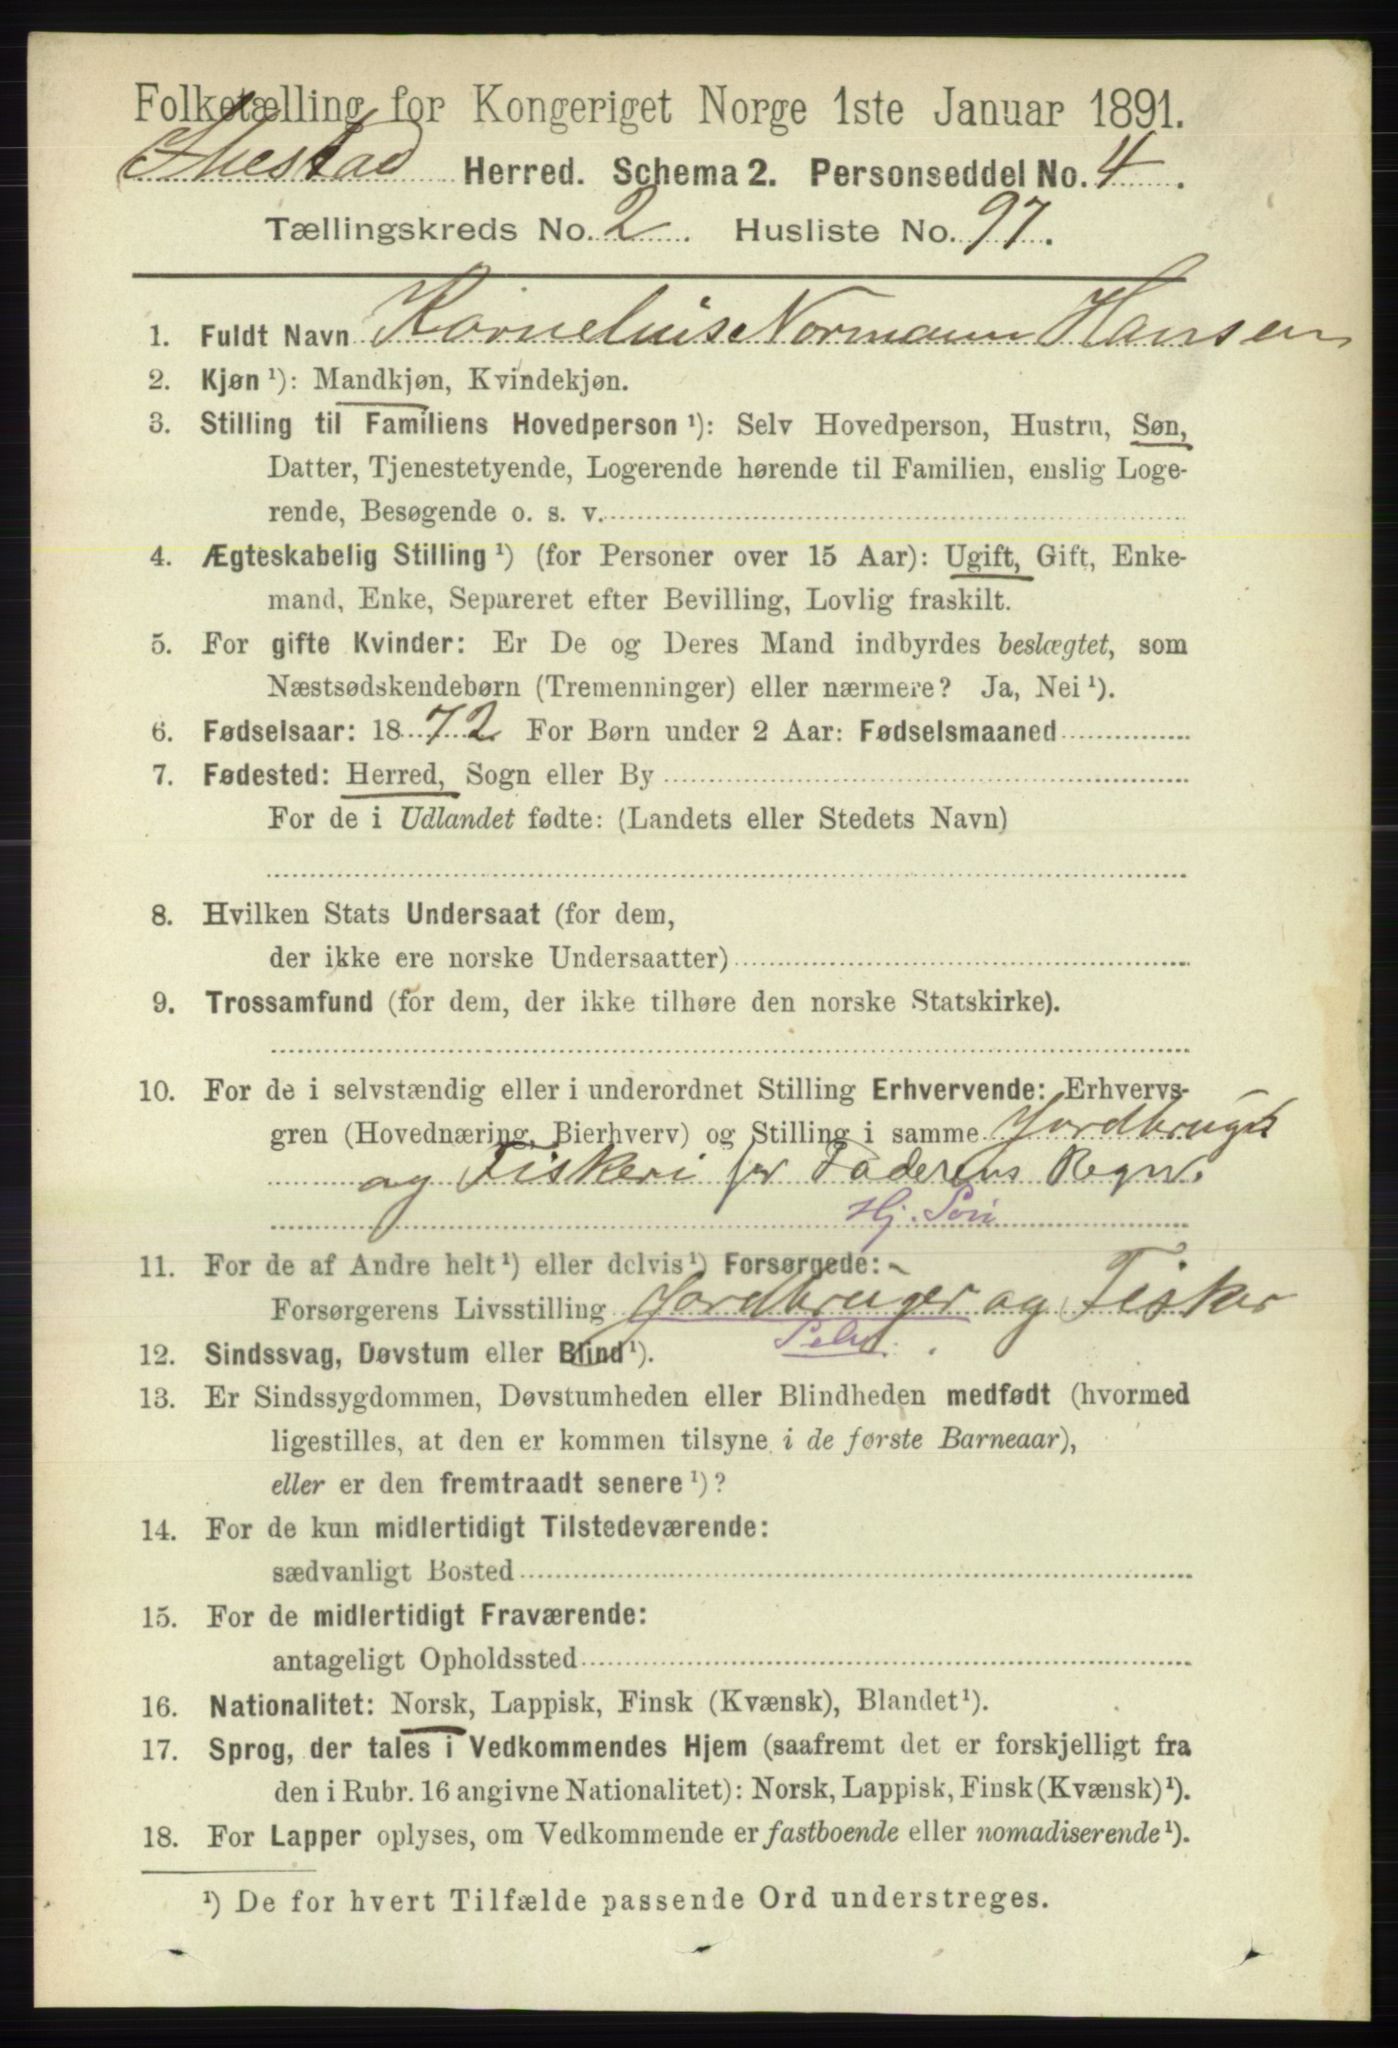 Folketælling for Kongeriget Norge 1ste Januar 1891.
Ibestad Herred. Schema 2. Personseddel No. 4.
Tællingskreds No. 2. Husliste No. 97.
1. Fuldt Navn Kornelius Normann Hansen
2. Kjøn ¹): Mandkjøn, Kvindekjøn.
3. Stilling til Familiens Hovedperson ¹): Selv Hovedperson, Hustru, Søn,
Datter, Tjenestetyende, Logerende hørende til Familien, enslig Loge-
rende, Besøgende o. s. v.
4. Ægteskabelig Stilling ¹) (for Personer over 15 Aar): Ugift, Gift, Enke-
mand, Enke, Separeret efter Bevilling, Lovlig fraskilt.
5. For gifte Kvinder: Er De og Deres Mand indbyrdes beslægtet, som
Næstsødskendebørn (Tremenninger) eller nærmere? Ja, Nei ¹).
6. Fødselsaar: 1872 For Børn under 2 Aar: Fødselsmaaned
7. Fødested: Herred, Sogn eller By
For de i Udlandet fødte: (Landets eller Stedets Navn)
8. Hvilken Stats Undersaat (for dem,
der ikke ere norske Undersaatter)
9. Trossamfund (for dem, der ikke tilhøre den norske Statskirke).
10. For de i selvstændig eller i underordnet Stilling Erhvervende: Erhvervs-
gren (Hovednæring, Bierhverv) og Stilling i samme Jordbruget
og Fiskeri for Faderens Regn.
Hj. Søn
11. For de af Andre helt ¹) eller delvis ¹) Forsørgede:
Forsørgerens Livsstilling Jordbruger og Fisker
Selv.
12. Sindssvag, Døvstum eller Blind ¹).
13. Er Sindssygdommen, Døvstumheden eller Blindheden medfødt (hvormed
ligestilles, at den er kommen tilsyne i de første Barneaar),
eller er den fremtraadt senere ¹)?
14. For de kun midlertidigt Tilstedeværende:
sædvanligt Bosted
15. For de midlertidigt Fraværende:
antageligt Opholdssted
16. Nationalitet: Norsk, Lappisk, Finsk (Kvænsk), Blandet ¹).
17. Sprog, der tales i Vedkommendes Hjem (saafremt det er forskjelligt fra
den i Rubr. 16 angivne Nationalitet): Norsk, Lappisk, Finsk (Kvænsk) ¹).
18. For Lapper oplyses, om Vedkommende er fastboende eller nomadiserende ¹).
¹) De for hvert Tilfælde passende Ord understreges.